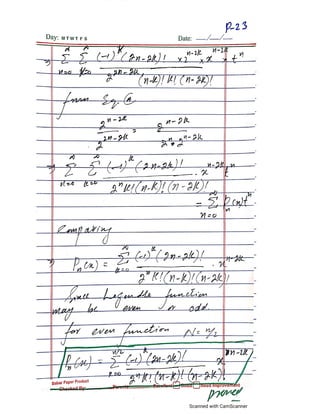 P-23
Day: M T W T F S Date: __/__/__
⇒ ∞ ∑ n=0 ∞ ∑ k=0 (-1)^k (2n-2k)! / 2^{2n-2k} (n-k)! k! (n-2k)! × 2^{n-2k} × x^{n-2k} × t^n
from Eq.
2^{n-2k} / 2^{2n-2k} = 2^{n-2k} / 2^n 2^{n-2k}
⇒ ∞ ∑ n=0 ∞ ∑ k=0 (-1)^k (2n-2k)! / 2^n k! (n-k)! (n-2k)! . x^{n-2k} t^n
= ∞ ∑ n=0 P_n(x) t^n
Comparing
⇒ P_n(x) = ∞ ∑ k=0 (-1)^k (2n-2k)! / 2^n k! (n-k)! (n-2k)! . x^{n-2k}
Since Legendle function
may be even or odd.
for even function N = n/2
P_n(x) = n/2 ∑ (-1)^k (2n-2k)! / 2^n k! (n-k)! (n-2k)! x^{n-2k}
Baber Paper Product
Checked By: Excellent Good Need Improvement
proved
Scanned with CamScanner